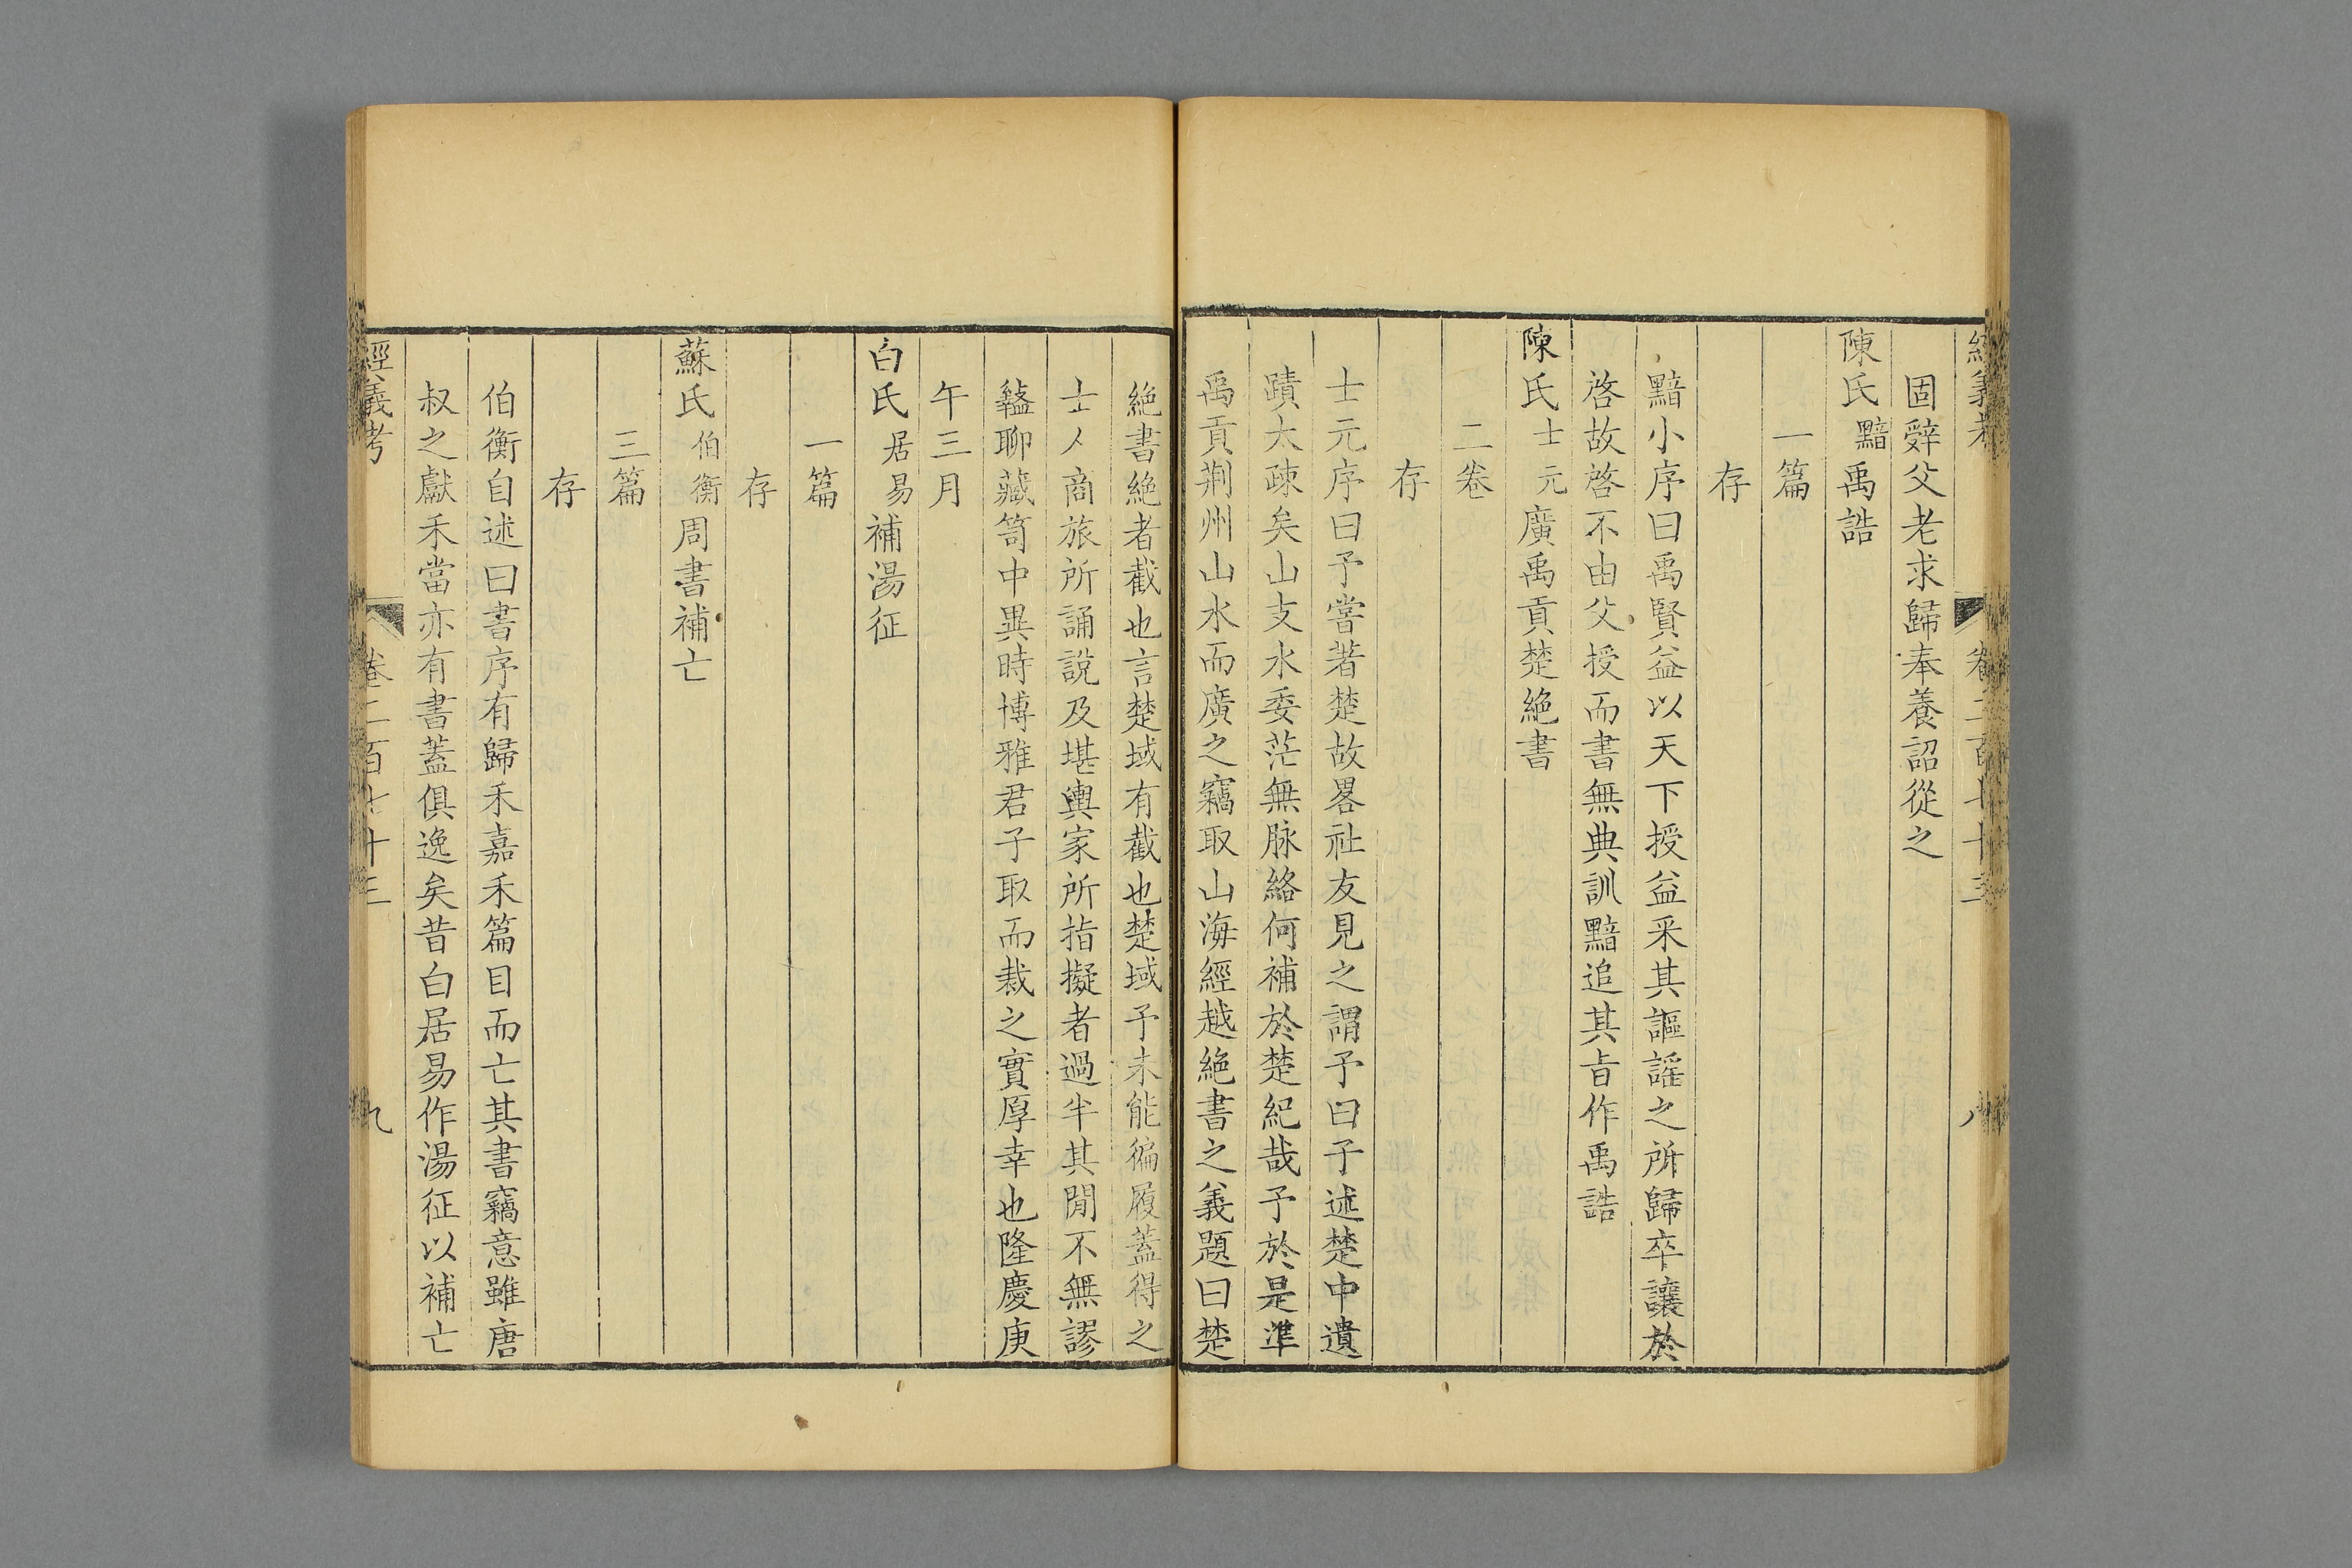 經義考 卷二百七十三 八
固辤父老求歸奉養詔從之
陳氏黯禹誥
一篇
存
黯小序曰禹賢益以天下授益采其謳謡之所歸卒讓於
啓故啓不由父授而書無典訓黯追其旨作禹誥
陳氏士元廣禹貢楚絶書
二卷
存
士元序曰予嘗著楚故畧社友見之謂予曰子述楚中遺
蹟大疎矣山支水委茫無脉絡何補於楚紀哉予於是準
禹貢荆州山水而廣之竊取山海經越絶書之義題曰楚
絶書絶者截也言楚域有截也楚域予未能徧履蓋得之
士人商旅所誦説及堪輿家所指擬者過半其閒不無謬
盭聊藏笥中異時博雅君子取而裁之實厚幸也隆慶庚
午三月
白氏居易補湯征
一篇
存
蘇氏伯衡周書補亡
三篇
存
伯衡自述曰書序有歸禾嘉禾篇目而亡其書竊意雖唐
叔之獻禾當亦有書蓋俱逸矣昔白居易作湯征以補亡
經義考 卷二百七十三 九